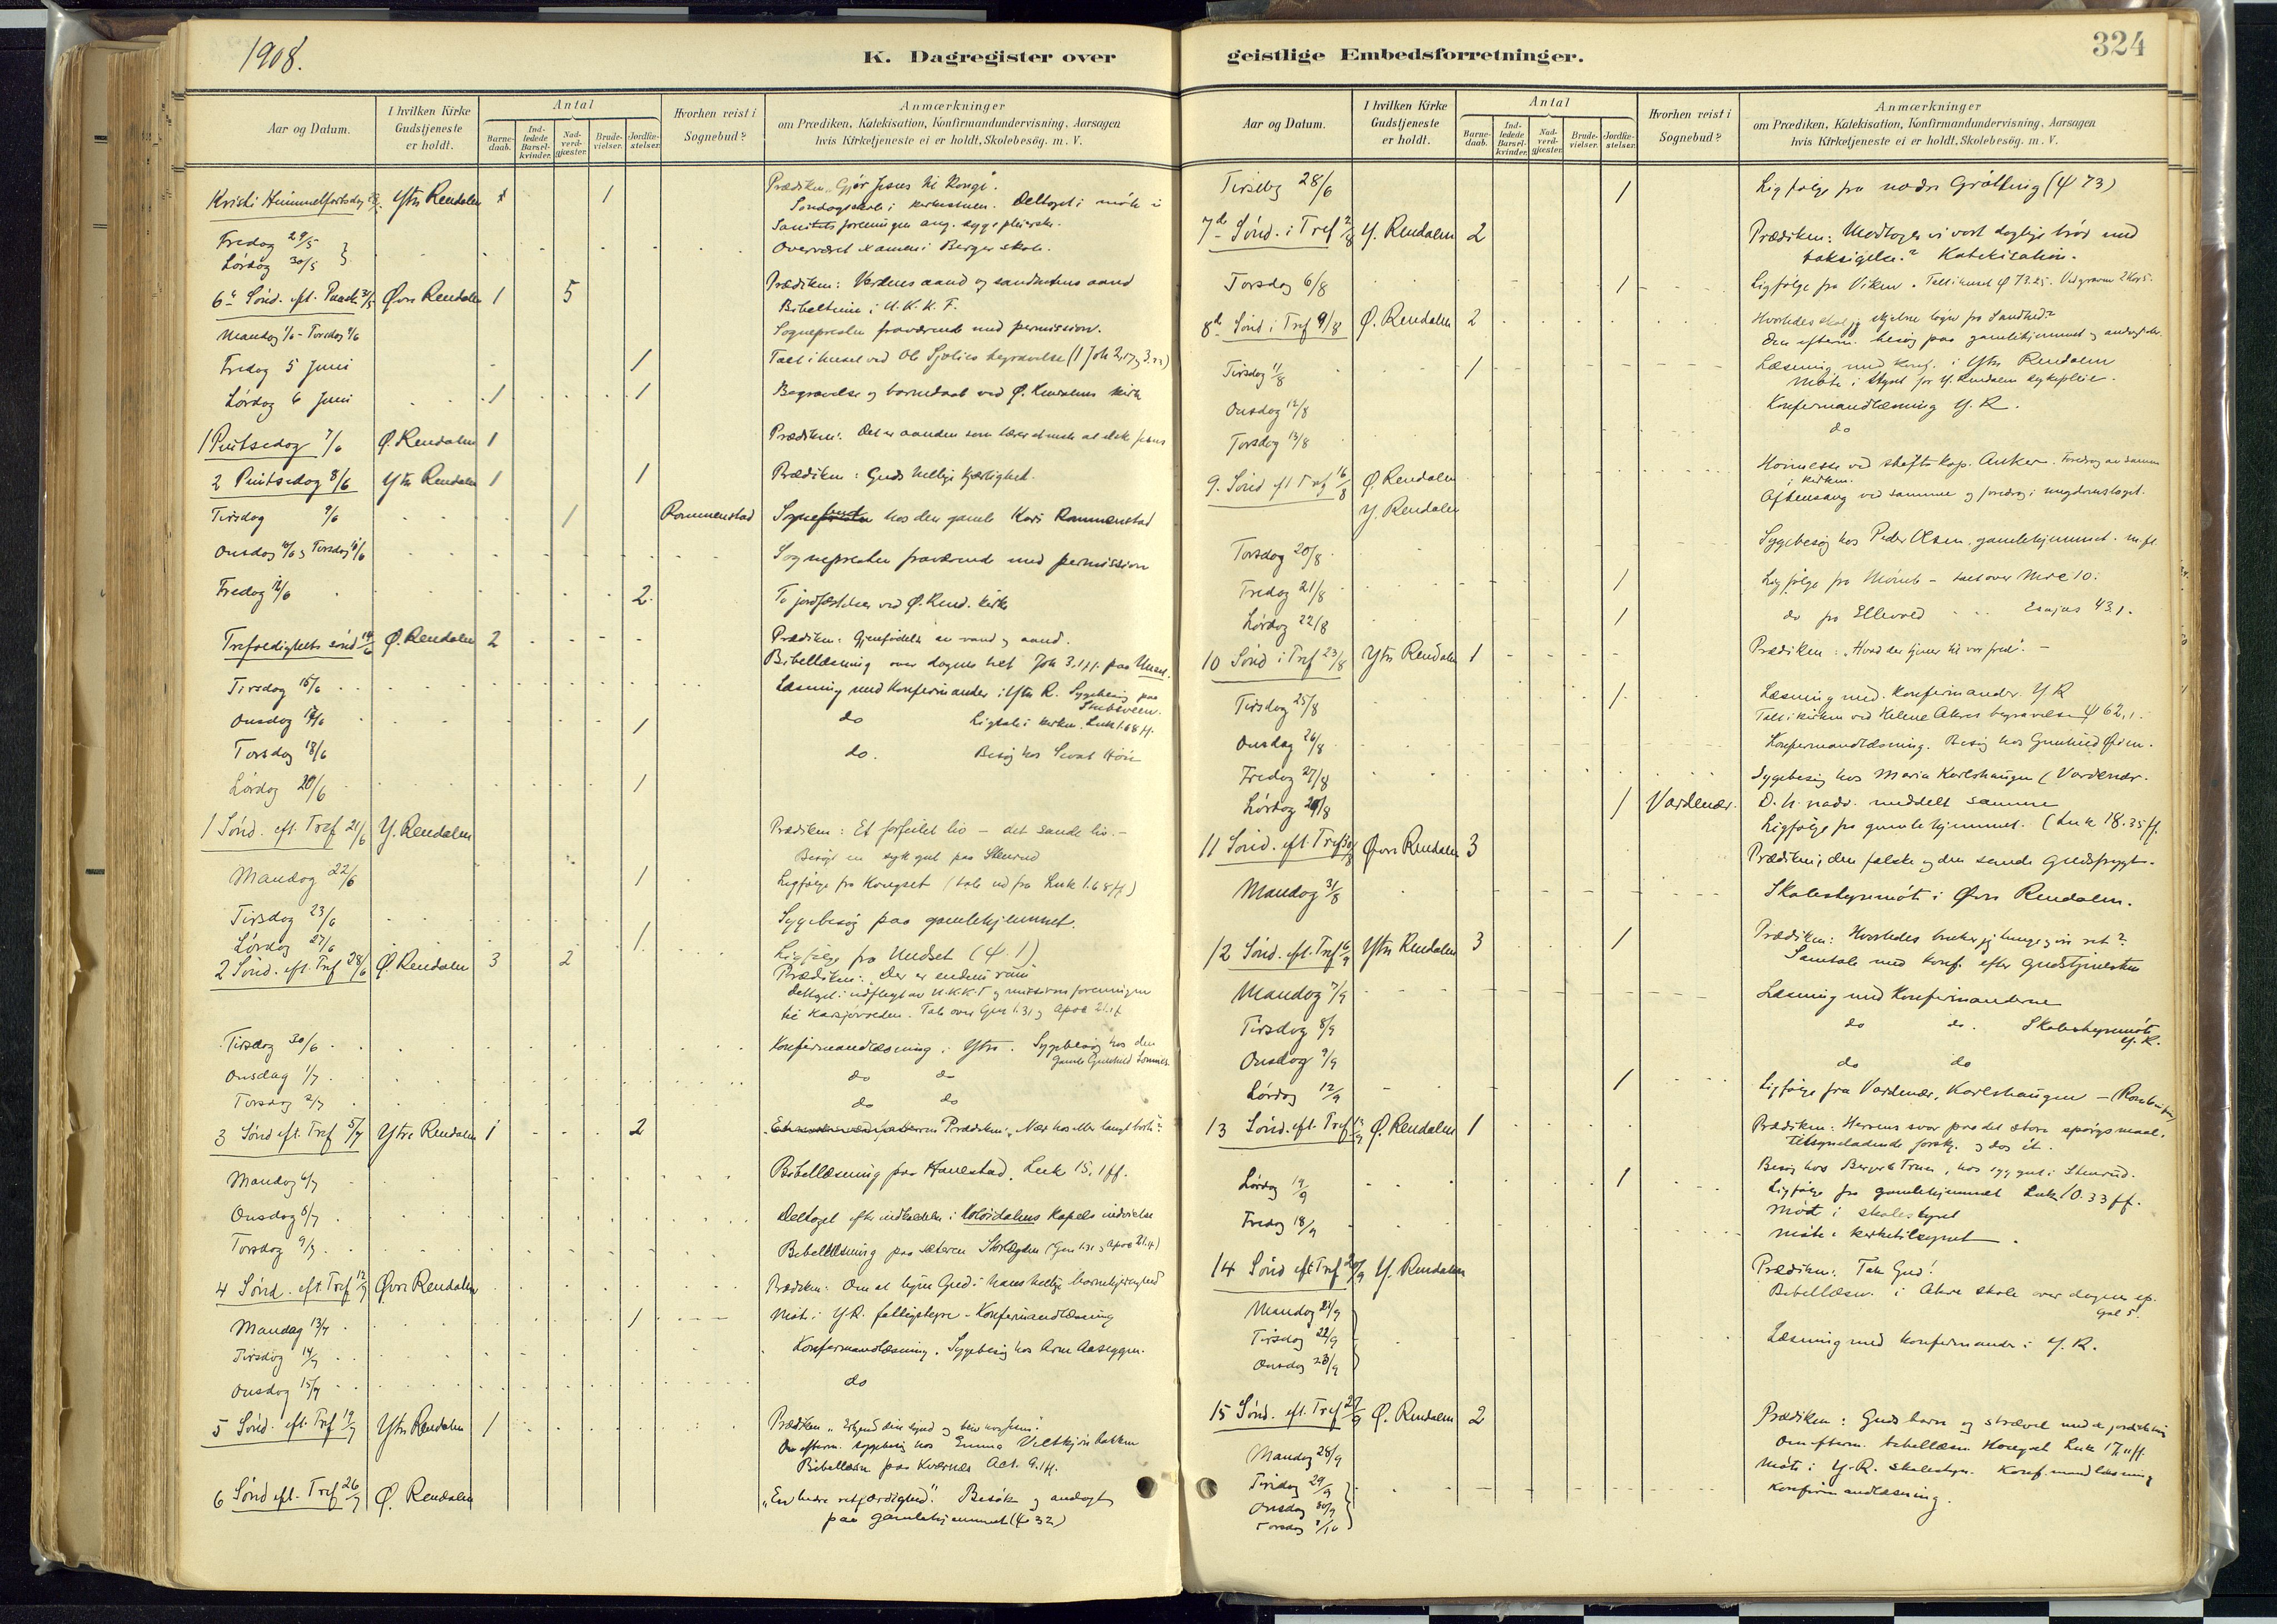 1908.
K. Dagregister over
Aar og Datum.
I hvilken Kirke Gudstjeneste er holdt.
Antal
Barne-daab.
Ind-ledede Barsel-kvinder.
Nad-verd-gjæster.
Brude-vielser.
Jordfæ-stelser.
Hvorhen reist i Sognebud?
Anmærkninger
om Prædiken, Katekisation, Konfirmandundervisning, Aarsagen
hvis Kirketjeneste ei er holdt, Skolebesög. m. V.
Kristi Himmelfartsdag 28/5. Ytre Rendalen 1 1 Prædiken "Gjør Jesus til Konge".
Søndagsskole i kirkestuen. Deltaget i møte i
Sanitetsforeningen ang. sygepleierske.
Fredag 29/5
Lørdag 30/5 } Overværet examen i Berger skole.
6te Sønd. eft. Paaske 31/5 Øvre Rendalen 1 5 Prædiken: Verdens aand og sandhedens aand
Bibeltime i U.K.K.F.
Mandag 1/6 - Torsdag 4/6 Sognepresten fraværende med permission.
Fredag 5 Juni 1 Tale i huset ved Ole Sjølies begravelse (1 Joh 2,17 og 3.)
Lørdag 6 Juni 1 1 Begravelse og barnedaab ved Ø. Rendalens kirke
1 Pintsedag 7/6 Ø. Rendalen 1 Prædiken: Det er aanden som lærer at elske Jesus
2 Pintsedag 8/6 Ytre Rendalen 1 1 Prædiken: Guds hellige kjærlighet.
Tirsdag 9/6 1 Rommenstad Sognebud hos den gamle Kari Rommenstad
Onsdag 10/6 og Torsdag 11/6 Sognepresten fraværende med permission
Fredag 12/6 2. To jordfæstelser ved Ø. Rend. kirke
Trefoldighets sønd 14/6 Ø. Rendalen 2 Prædiken: Gjenfødelse av vand og aand.
Bibellæsning over dagens text Joh 3.1ff. paa Unset.
Tirsdag 16/6 Læsning med Konfirmander i Ytre R. Sygebesøg paa
Onsdag 17/6 1 do Ligtale i kirken. Luk 1.68 ff.
Torsdag 18/6 do. Besøg hos
Lørdag 20/6 1
1 Sønd. eft. Tref 21/6 Y. Rendalen Prædiken: Et forfeilet liv - det sande liv. -
Besøgt en syk gut paa Stenrud
Mandag 22/6 1 Ligfølge fra Kongset (tale ud fra Luk 1.68 ff)
Tirsdag 23/6 Sygebesøg paa gamlehjemmet.
Lørdag 27/6 1. Ligfølge fra Undset (ψ. 1)
2 Sønd. eft. Tref 28/6 Ø. Rendalen 3 2 Prædiken: "Der er endnu rum"
Deltaget i udflugt av U.K.K.F og missionsforeningen
Tale over Gen 1.31 og Apoc 21.1f
Tirsdag 30/6 Konfirmandlæsning i Ytre. Sygebesøg hos den
gamle Gunhild Lomnes.
Onsdag 1/7 do do
Torsdag 2/7 do do
3 Sønd eft. Tref 5/7 Ytre Rendalen 1 2 Prædiken: "Nær hos eller langt borte".
Mandag 6/7 Bibellæsning paa Hanestad. Luk 15.1ff.
Onsdag 8/7 Deltaget efter indbydelse i Kapels indvielse
Torsdag 9/7 Bibellæsning paa sæteren (Gen 1.31 og Apoc 21.4)
4 Sønd. eft. Tref 12/7 Øvre Rendalen Prædiken: Om at ligne Gud i hans hellige barmhjertighed
Mandag 13/7 1 Møte i Y.R. fattigstyre - Konfirmandlæsning
Tirsdag 14/7 Konfirmandlæsning. Sygebesøg hos Arne Aaseggen.
Onsdag 15/7 do
5 Sønd. eft. Tref 19/7 Ytre Rendalen 1 Prædiken
Om efterm. sygebesøg hos Emma
Bibellæsn paa Kværnes Act. 9.1ff.
6 Sønd eft. Tref 26/7 Ø. Rendalen "En bedre retfærdighed". Besøk og andagt
paa gamlehjemmet (ψ 32)
geistlige Embedsforretninger.
324
Aar og Datum.
I hvilken Kirke Gudstjeneste er holdt.
Antal
Barne-daab.
Ind-ledede Barsel-kvinder.
Nad-verd-gjæster.
Brude-vielser.
Jordfæ-stelser.
Hvorhen reist i Sognebud?
Anmærkninger
om Prædiken, Katekisation, Konfirmandundervisning, Aarsagen
hvis Kirketjeneste ei er holdt, Skolebesög. m. V.
Tirsdag 28/6 1 Ligfølge fra nedre Gråtting (ψ 73)
7de Sønd. i Tref 2/8 Y. Rendalen 2 Prædiken: Modtager vi vort daglige brød med
taksigelse? Katekisation.
Torsdag 6/8 1 Ligfølge fra Viken. Tale i huset ψ 73.25. Ved graven 2 Kor 5.
8de Sønd i Tref 9/8 Ø. Rendalen 2 Hvorledes skal jeg skjelne løgn fra Sandhed?
Den efterm. besøg paa gamlehjemmet og andagt der.
Tirsdag 11/8 1 Læsning med Konf. i Ytre Rendalen
Møte i styret for Y. Rendalen sykepleie.
Onsdag 12/8 Konfirmandlæsning Y.R.
Torsdag 13/8 do
9. Sønd eft Tref 16/8 Ø. Rendalen Høimesse ved stiftskap. Anker. Foredrag av samme
i kirken.
Y. Rendalen Aftensang ved samme og foredrag i ungdomslaget.
Torsdag 20/8 Sygebesøg hos Peder Olsen, gamlehjemmet. m.fl.
Fredag 21/8 1 Ligfølge fra - tale over
Lørdag 22/8 1 do fra Ellevold Esajas 43.1.
10 Sønd i Tref 23/8 Ytre Rendalen 1 Prædiken: "Hvad der tjener til vor fred". -
Tirsdag 25/8 1. Læsning med Konfirmander. Y.R
Tale i kirken ved Helene Akres begravelse ψ 62,1.
Onsdag 26/8 Konfirmandlæsning. Besøg hos Gunhild
Fredag 27/8 Sygebesøg hos Maria Karlshaugen (Vardenær.
Lørdag 29/8 1 Vardenær. D.h. nadv. meddelt samme
Ligfølge fra gamlehjemmet. (Luk 18.35 ff.
11 Sønd. eft. Tref 30/8 Øvre Rendalen 3 Prædiken: den falske og den sande Gudsfrygt.
Mandag 31/8 Skolestyremøte i Øvre Rendalen.
12 Sønd. eft. Tref 6/9 Ytre Rendalen 3 1 Prædiken: Hvorledes bruker jeg tunge og øre ret?
Samtale med konf. efter Gudstjenesten
Mandag 7/9 Læsning med Konfirmanderne
Tirsdag 8/9 do do. Skolestyremøte
Y.R.
Onsdag 9/9 do do
Lørdag 12/9 1 Ligfølge fra Vardenær, Karlshaugen
13 Sønd. eft. Tref 13/9 Ø. Rendalen 1 Prædiken: Herrens svar paa det store spørgsmaal.
Tilsyneladende forskj. og dog ét.
Lørdag 19/9 1 Besøg hos, hos syg gut i Stenrud.
Ligfølge fra gamlehjemmet Luk 10.33 ff.
Fredag 18/9 Møte i skolestyret
Møte i kirketilsynet.
14 Sønd eft Tref 20/9 Y. Rendalen Prædiken: Tak Gud!
Bibellæsn. i Akre skole over dagens ep.
Gal 5.
Mandag 21/9
Tirsdag 22/9
Onsdag 23/9 } Læsning med Konfirmander i Y.R.
15 Sønd. eft. Tref 27/9 Ø. Rendalen 2 Prædiken: Guds barn og strævet med de jordiske ting
Om efterm. bibellæsn. Kongset Luk 17.11ff.
Mandag 28/9 Møte i Y.R. skolestyre. Konfirmandlæsning
Tirsdag 29/9
Onsdag 30/9
Torsdag 1/10 } Konfirmandlæsning.